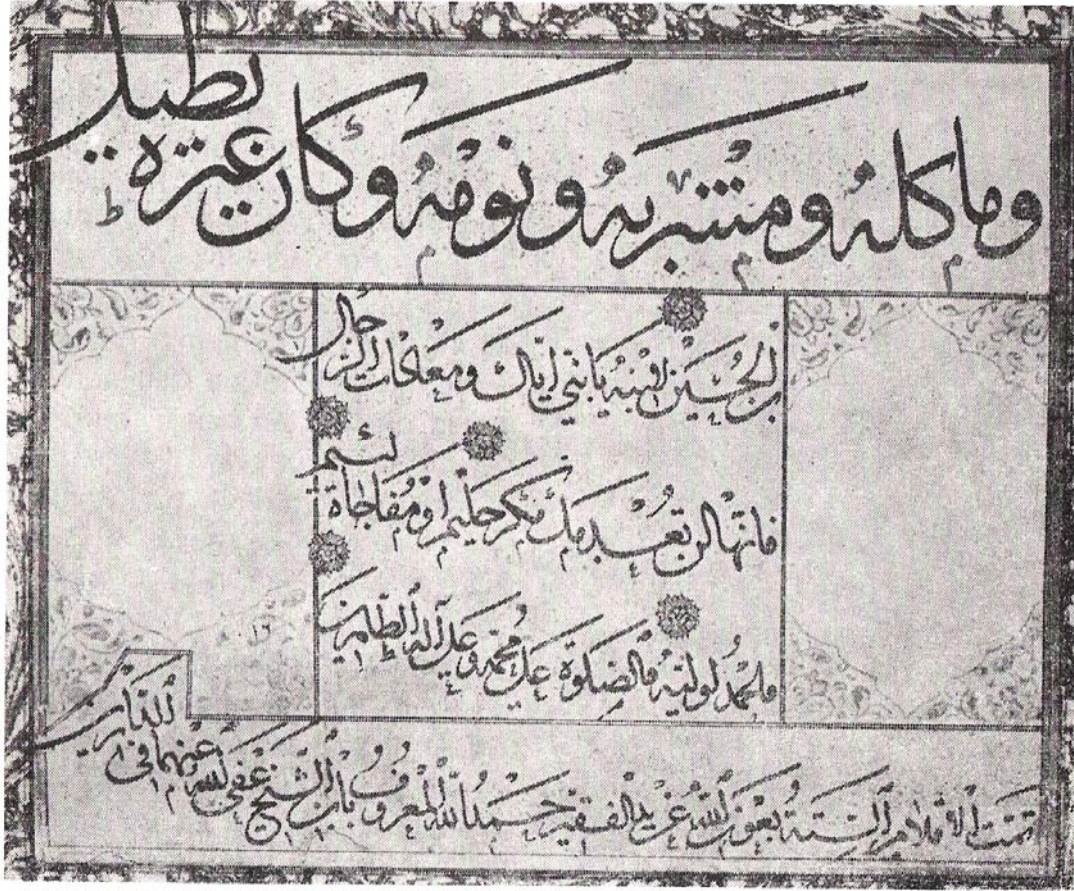 وما كله ومشربه ونومه وكان غيره يطيل
بن الحسين لابنه يا بني اياك ومعادات الرجال
فانها لن تعدمك مكر حليم او مفاجاة لئيم
والحمد لوليه والصلوة على محمد وعلى آله الطاهرين
تمت الاقلام الستة بعون الله عن يد الفقير حمد الله المعروف بابن الشيخ عفى الله عنهما في الدارين